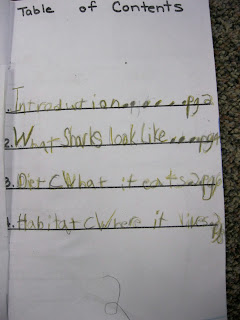 Table of Contents
1. Introduction......pg2
2. What Sharks look like...pg
3. Diet (What it eats)
4. Habitat (Where it lives)